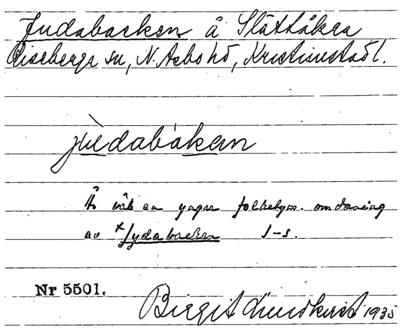 Judabacken å Slättåkra
Riseberga sn, N. Åsbo hd, Kristianstad l.
jùdabàkan
Är väl en yngre folketym. omdaning
av *Jydabacken
Nr 5501.
Birgit Lundkvist 1935